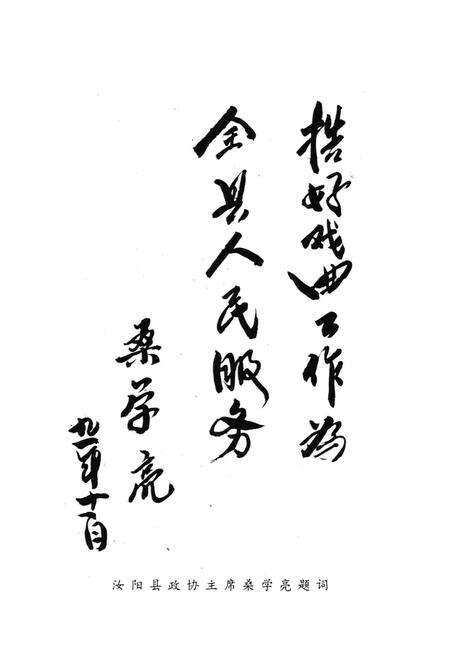 搞好戏曲工作為
全县人民服务
桑学亮
九一年十一月
汝阳县政协主席桑学亮题词